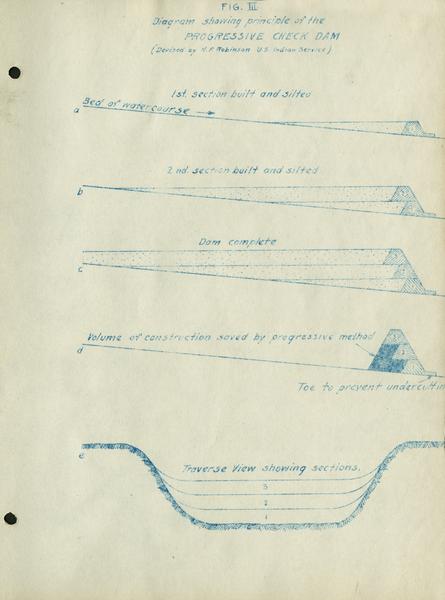 FIG. III
Diagram showing principle of the
PROGRESSIVE CHECK DAM
(Devised by H.F. Robinson U.S. Indian Service)
1st. section built and silted
a Bed of watercourse
2nd. section built and silted
b
Dam complete
c
Volume of construction saved by progressive method
d
Toe to prevent undercuttin
e
Traverse View showing sections.
3
2
1